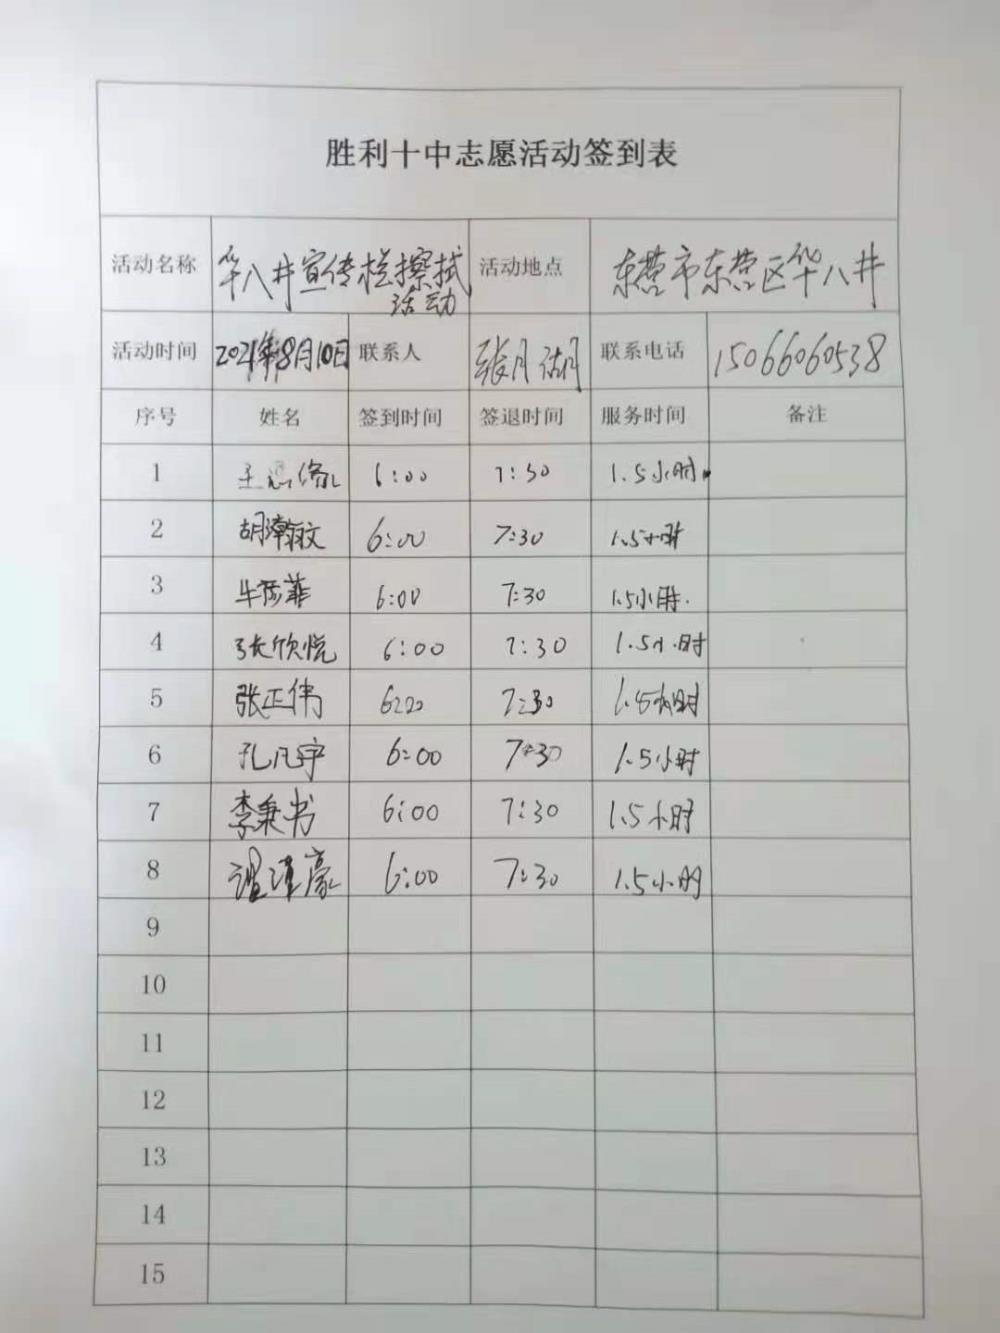 胜利十中志愿活动签到表
活动名称 华八井宣传栏擦拭活动 活动地点 东营市东营区华八井
活动时间 2021年8月10日 联系人 张月 联系电话 15066060538
序号 姓名 签到时间 签退时间 服务时间 备注
1 王 6:00 7:30 1.5小时
2 胡瀚文 6:00 7:30 1.5小时
3 牛 菲 6:00 7:30 1.5小时.
4 张欣悦 6:00 7:30 1.5小时
5 张正伟 6:00 7:30 1.5小时
6 孔凡宇 6:00 7:30 1.5小时
7 李秉书 6:00 7:30 1.5小时
8 豪 6:00 7:30 1.5小时
9
10
11
12
13
14
15